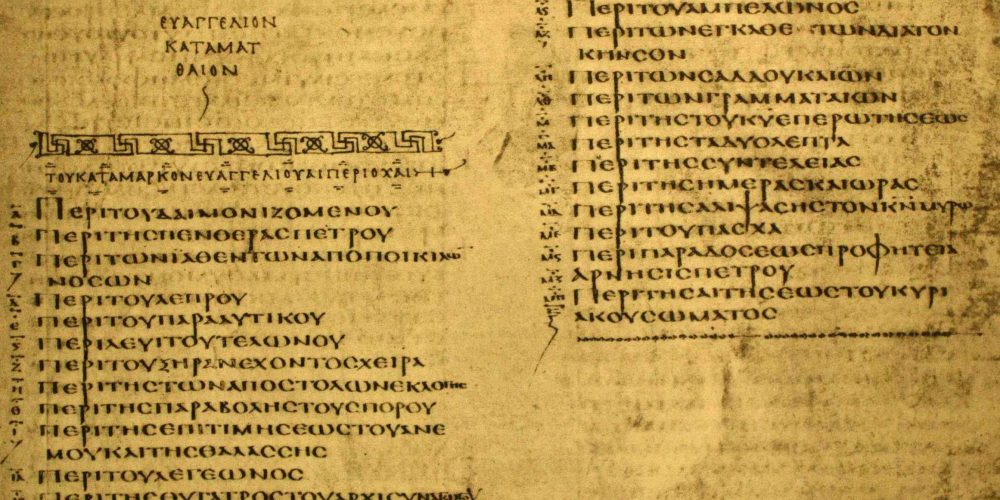 ΕΥΑΓΓΕΛΙΟΝ
ΚΑΤΑΜΑΤ
ΘΑΙΟΝ
ΤΟΥΚΑΤΑΜΑΡΚΟΝΕΥΑΓΓΕΛΙΟΥΑΙΠΕΡΙΟΧΑΙ
ΠΕΡΙΤΟΥΔΑΙΜΟΝΙΖΟΜΕΝΟΥ
ΠΕΡΙΤΗϹΠΕΝΘΕΡΑϹΠΕΤΡΟΥ
ΠΕΡΙΤΩΝΙΑΘΕΝΤΩΝΑΠΟΠΟΙΚΙΛΩ
ΝΟϹΩΝ
ΠΕΡΙΤΟΥΛΕΠΡΟΥ
ΠΕΡΙΤΟΥΠΑΡΑΛΥΤΙΚΟΥ
ΠΕΡΙΛΕΥΙΤΟΥΤΕΛΩΝΟΥ
ΠΕΡΙΤΟΥΞΗΡΑΝΕΧΟΝΤΟϹΧΕΙΡΑ
ΠΕΡΙΤΗϹΤΩΝΑΠΟϹΤΟΛΩΝΕΚΛΟΓΗϹ
ΠΕΡΙΤΗϹΠΑΡΑΒΟΛΗϹΤΟΥϹΠΟΡΟΥ
ΠΕΡΙΤΗϹΕΠΙΤΙΜΗϹΕΩϹΤΟΥΑΝΕ
ΜΟΥΚΑΙΤΗϹΘΑΛΑϹϹΗϹ
ΠΕΡΙΤΟΥΛΕΓΕΩΝΟϹ
ΠΕΡΙΤΗϹΘΥΓΑΤΡΟϹΤΟΥΑΡΧΙϹΥΝΑΓΩΓΟΥ
ΠΕΡΙΤΟΥΑΜΠΕΛΩΝΟϹ
ΠΕΡΙΤΩΝΕΓΚΑΘΕΤΩΝΔΙΑΤΟΝ
ΚΗΝϹΟΝ
ΠΕΡΙΤΩΝϹΑΔΔΟΥΚΑΙΩΝ
ΠΕΡΙΤΩΝΓΡΑΜΜΑΤΑΙΩΝ
ΠΕΡΙΤΗϹΤΟΥΚΥΕΠΕΡΩΤΗϹΕΩϹ
ΠΕΡΙΤΗϹΤΑΔΥΟΛΕΠΤΑ
ΠΕΡΙΤΗϹϹΥΝΤΕΛΕΙΑϹ
ΠΕΡΙΤΗϹΗΜΕΡΑϹΚΑΙΩΡΑϹ
ΠΕΡΙΤΗϹΑΛΙΨΑϹΗϹΤΟΝΚΝΜΥΡΩ
ΠΕΡΙΤΟΥΠΑϹΧΑ
ΠΕΡΙΠΑΡΑΔΟϹΕΩϹΠΡΟΦΗΤΕΙΑ
ΑΡΝΗϹΙϹΠΕΤΡΟΥ
ΠΕΡΙΤΗϹΑΙΤΗϹΕΩϹΤΟΥΚΥΡΙ
ΑΚΟΥϹΩΜΑΤΟϹ